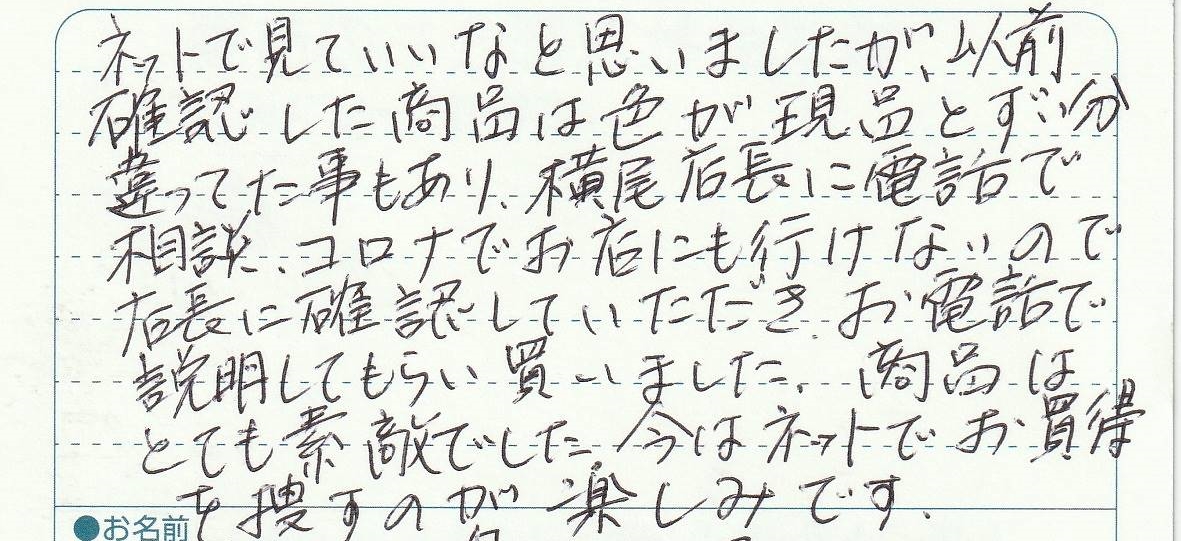 ネットで見ていいなと思いましたが、以前
確認した商品は色が現品とずい分
違ってた事もあり、横尾店長に電話で
相談、コロナでお店にも行けないので
店長に確認していただき、お電話で
説明してもらい買いました。商品は
とても素敵でした。今はネットでお買得
を捜すのが楽しみです。
●お名前